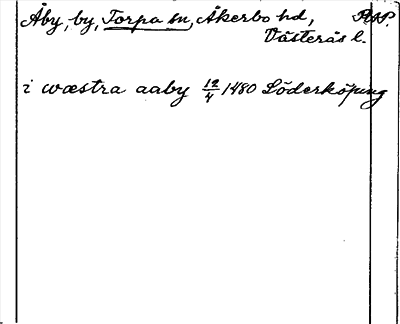 Åby, by, Torpa sn, Åkerbo hd, RAP.
Västerås l.
i wæstra aaby 12/4 1480 Söderköping